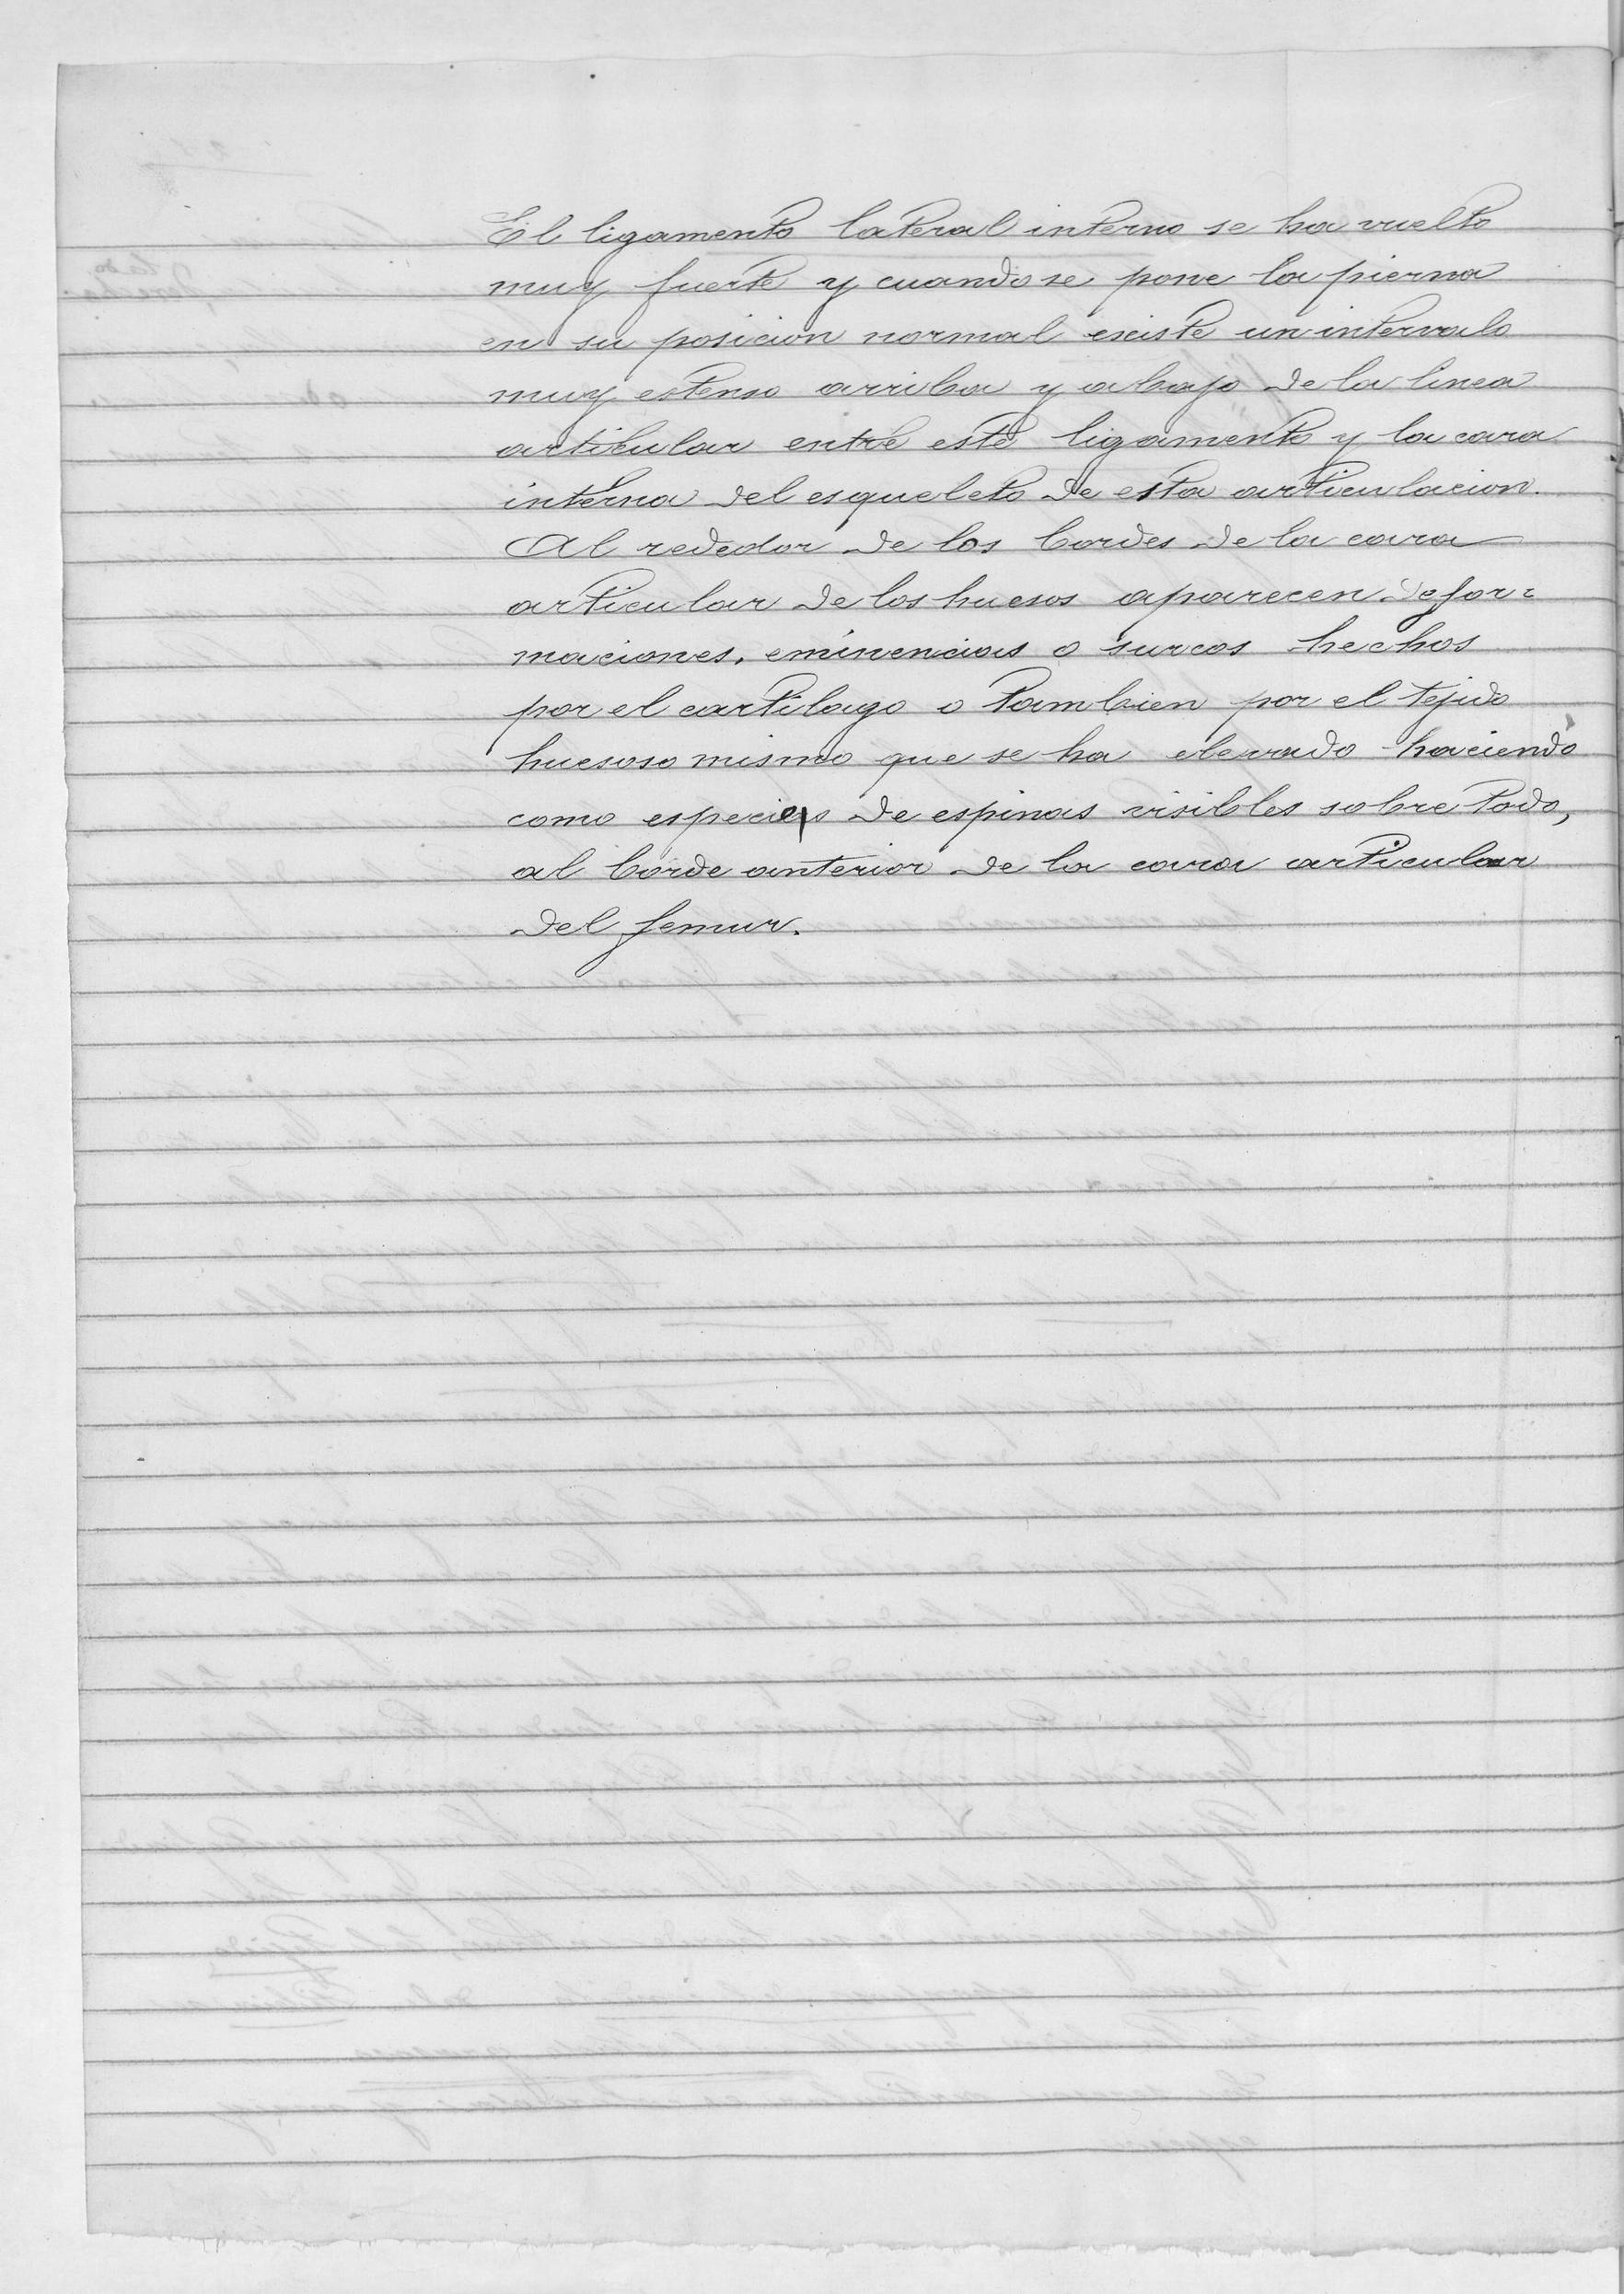 El ligamento lateral interno se ha vuelto
muy fuerte y cuando se pone la pierna
en su posicion normal existe un intervalo
muy estenso arriba y abajo de la linea
articular entre este ligamento y la cara
interna del esqueleto de esta articulacion.
Al rededor de los bordes de la cara
articular de los huesos aparecen defor=
maciones, eminencias o surcos hechos
por el cartilago o tambien por el tejido
huesoso mismo que se ha elevado haciendo
como especies de espinas visibles sobre todo,
al borde anterior de la cara articular
del femur.